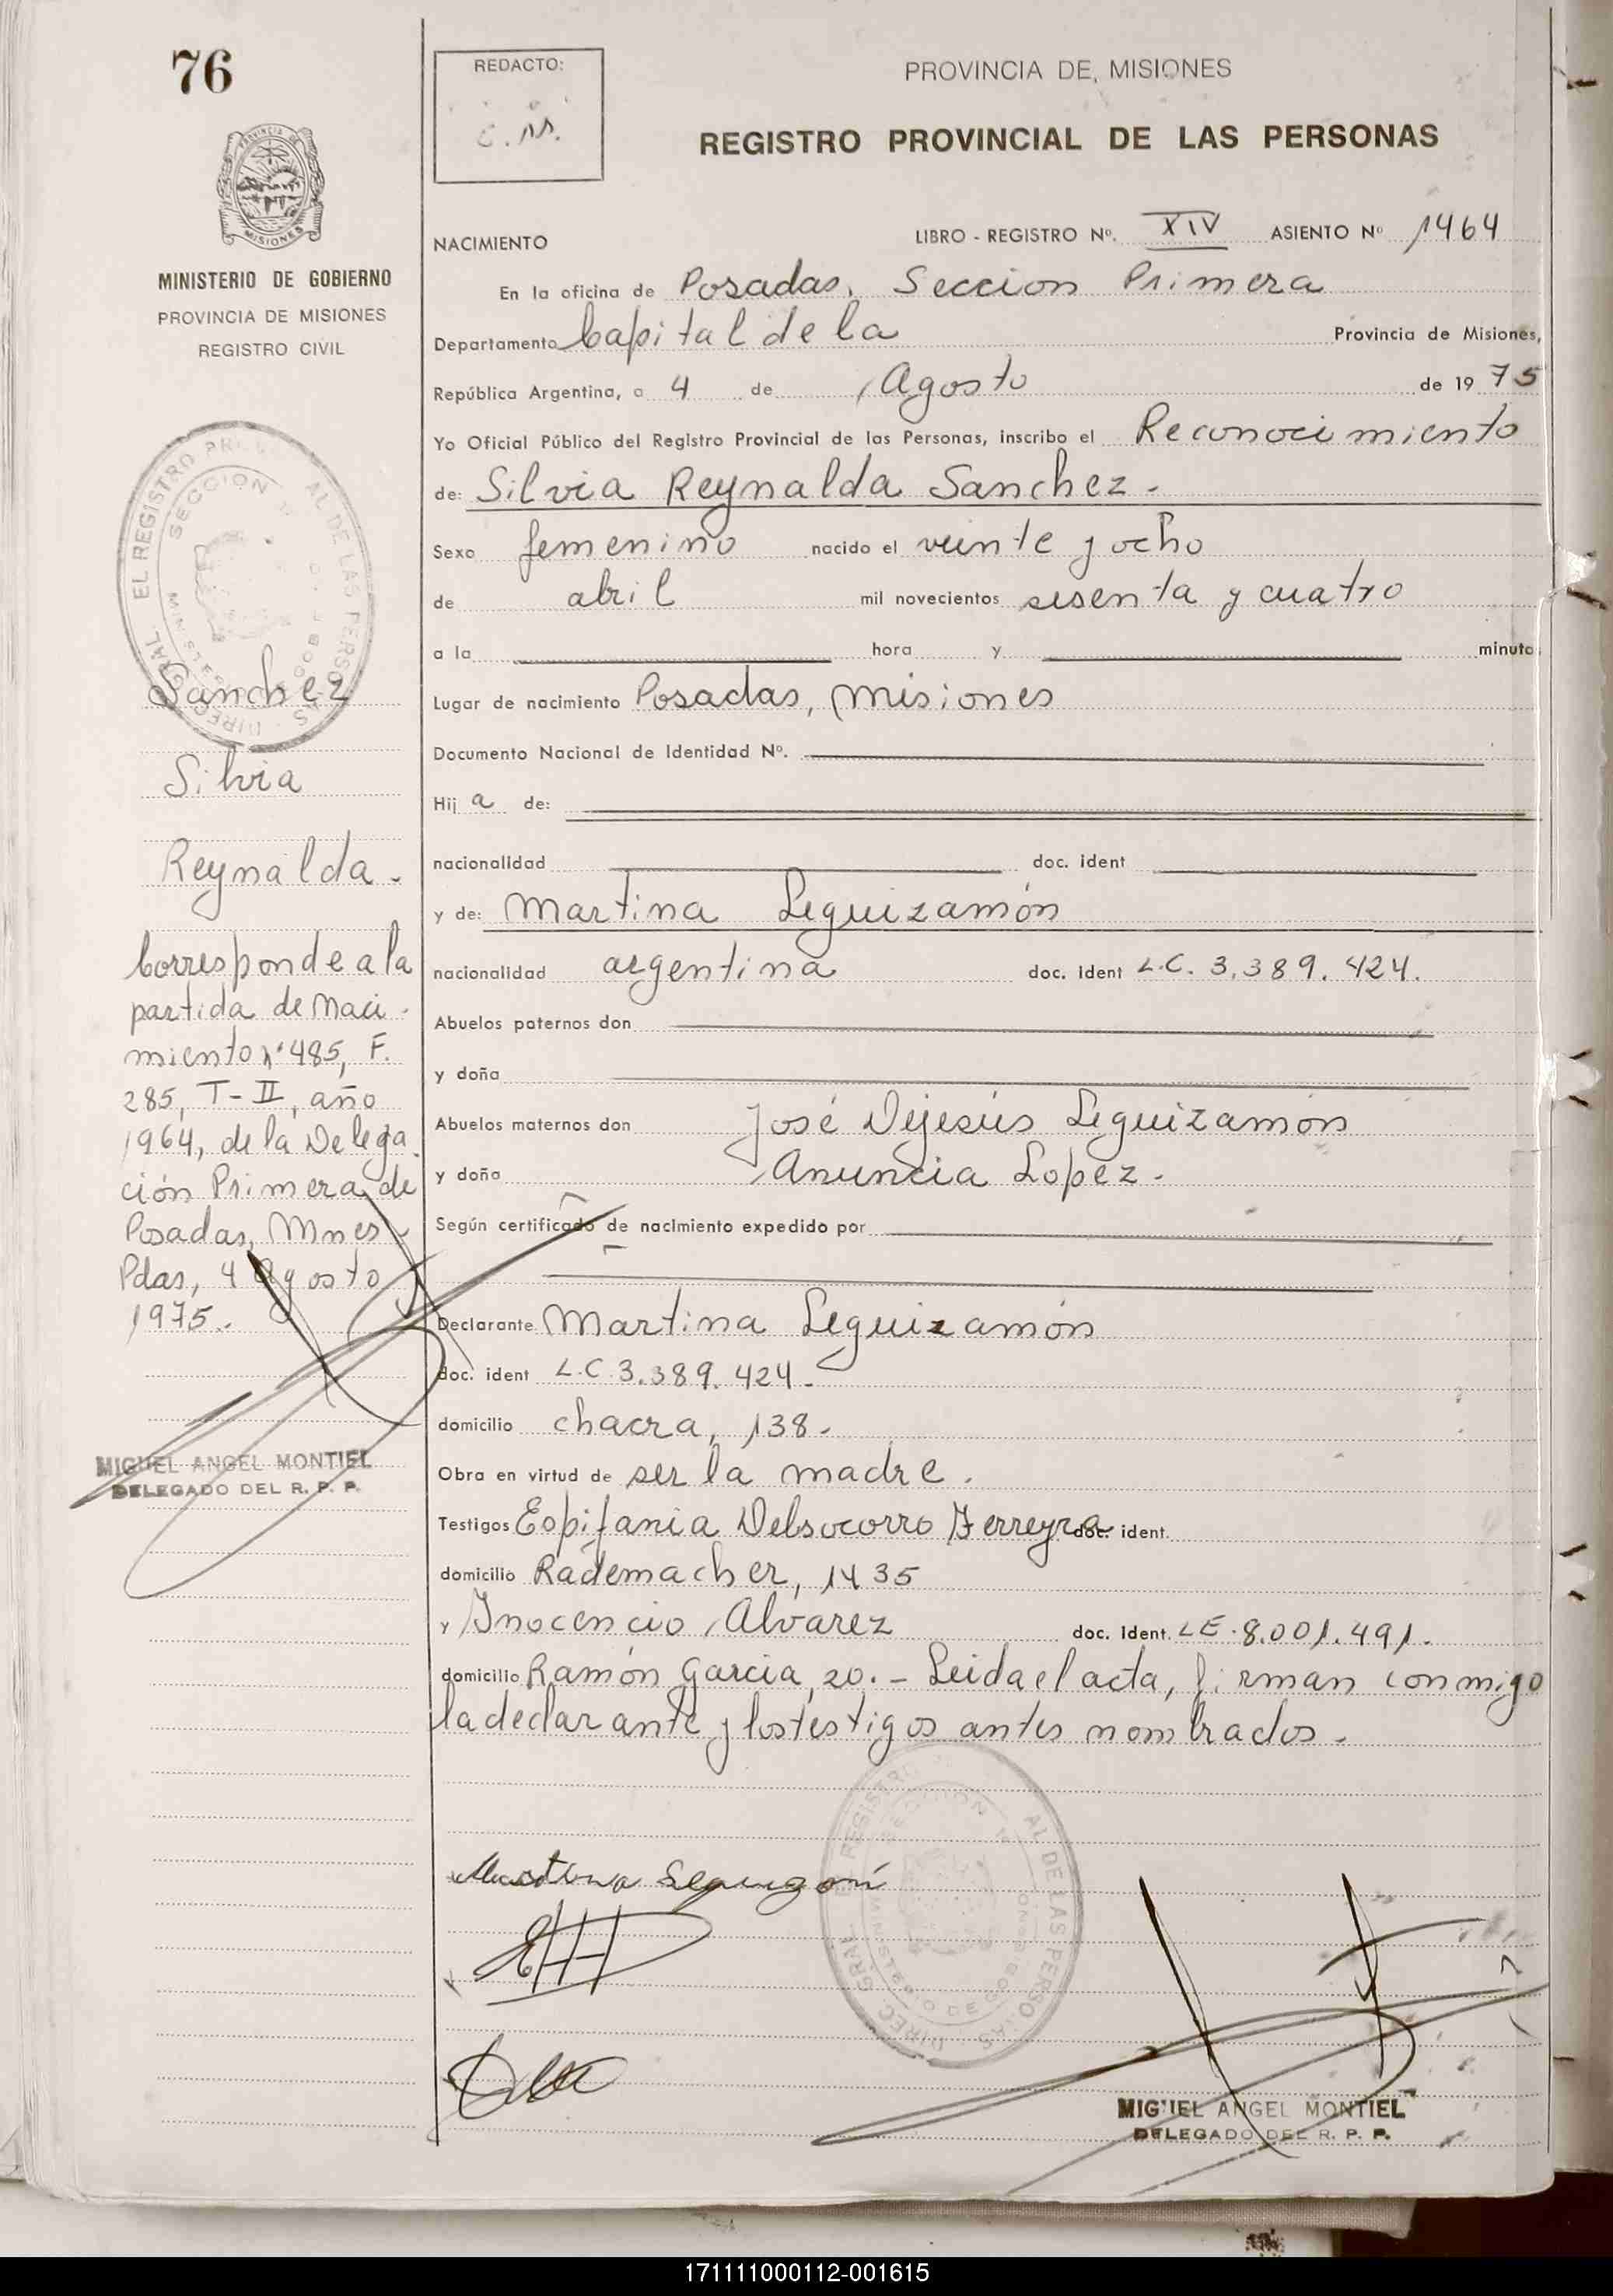 76
REDACTO:
PROVINCIA DE MISIONES
REGISTRO PROVINCIAL DE LAS PERSONAS
PROVINCIA DE MISIONES
NACIMIENTO
LIBRO - REGISTRO Nº. XIV ASIENTO Nº 1464
MINISTERIO DE GOBIERNO
PROVINCIA DE MISIONES
REGISTRO CIVIL
En la oficina de Posadas, Seccion Primera
Departamento Capital de la Provincia de Misiones,
República Argentina, a 4 de Agosto de 1975
Yo Oficial Público del Registro Provincial de las Personas, inscribo el Reconocimiento
de: Silvia Reynalda Sanchez.-
Sexo femenino nacido el veinte y ocho
de abril mil novecientos sesenta y cuatro
a la hora y minuto
Lugar de nacimiento Posadas, Misiones
Documento Nacional de Identidad Nº.
Hija de:
nacionalidad doc. ident
y de: Martina Leguizamón
nacionalidad argentina doc. Ident L.C. 3.389.424.
Abuelos paternos don
y doña
Abuelos maternos don José Dejesús Leguizamón
y doña Anuncia Lopez.-
Según certificado de nacimiento expedido por
Declarante Martina Leguizamón
doc. ident L.C 3.389.424.-
domicilio chacra, 138.-
Obra en virtud de ser la madre.
Testigos Eopifania Delsocorro Ferreyra doc. ident.
domicilio Rademacher, 1435
y Inocencio Alvarez doc. Ident. LE. 8.001.491.
domicilio Ramón Garcia, 20.- Leida el acta, firman conmigo
la declarante y los testigos antes nombrados.-
Sanchez
Silvia
Reynalda.-
Corresponde a la
partida de Naci-
miento nº 485, F.
285, T-II, año
1964, de la Delega-
ción Primera de
Posadas, Mnes
Pdas, 4 Agosto
1975.-
MIGUEL ANGEL MONTIEL
DELEGADO DEL R. P. P.
MIGUEL ANGEL MONTIEL
DELEGADO DEL R. P. P.
171111000112-001615